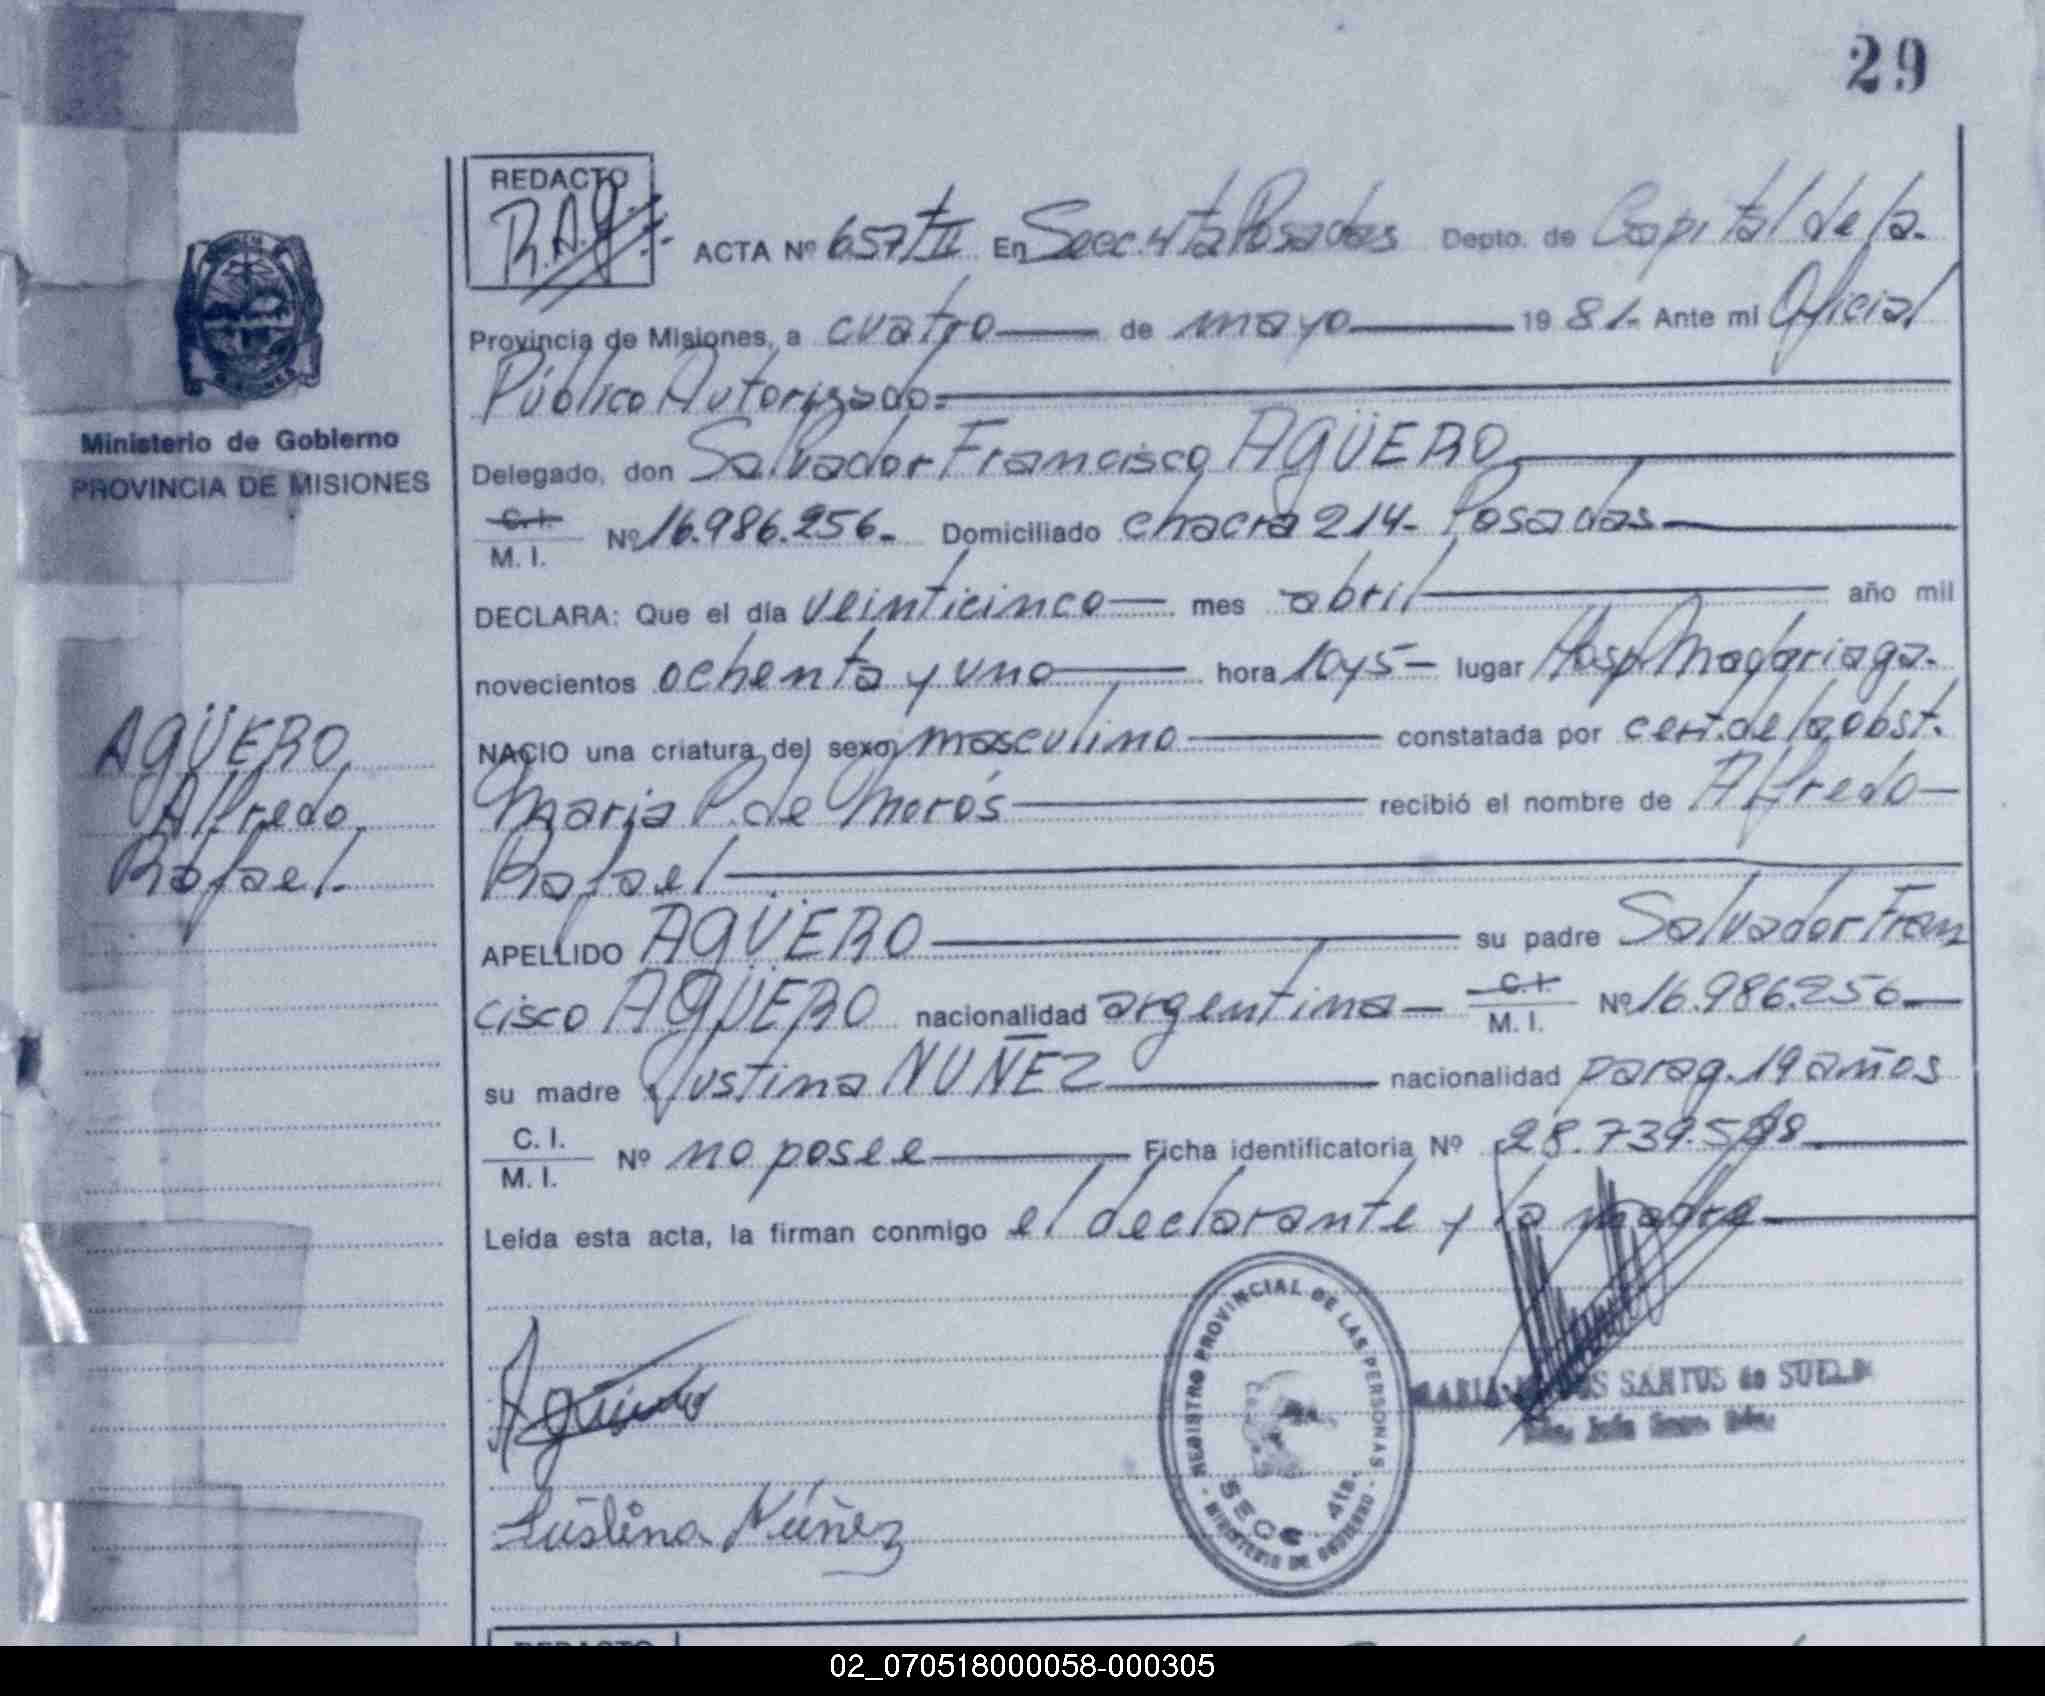 29
REDACTO
R.A.G.
ACTA Nº 657/TII En Secc. 4ta Posadas Depto. de Capital de la.
Provincia de Misiones, a cuatro de mayo 1981. Ante mi Oficial
Público Autorizado.
Ministerio de Gobierno
PROVINCIA DE MISIONES
Delegado, don Salvador Francisco AGÜERO
C. I.
M. I. Nº 16.986.256. Domiciliado chacra 214. Posadas
DECLARA: Que el día veinticinco mes abril año mil
novecientos ochenta y uno hora 10y5 lugar Hosp. Madariaga.
NACIO una criatura del sexo masculino constatada por cert. de la obst.
Maria P. de Morós recibió el nombre de Alfredo
Rafael
AGÜERO
Alfredo
Rafael.
APELLIDO AGÜERO su padre Salvador Fran
cisco AGÜERO nacionalidad argentina C. I.
M. I. Nº 16.986.256
su madre Justina NUÑEZ nacionalidad parag. 19 años
C. I.
M. I. Nº no posee Ficha identificatoria Nº 28.739.598
Leída esta acta, la firman conmigo el declarante y la madre
Agüero
Justina Núñez
REGISTRO PROVINCIAL DE LAS PERSONAS
SECC. 4ta.
MINISTERIO DE GOBIERNO
SANTOS de SUELD
REDACTO
02_070518000058-000305